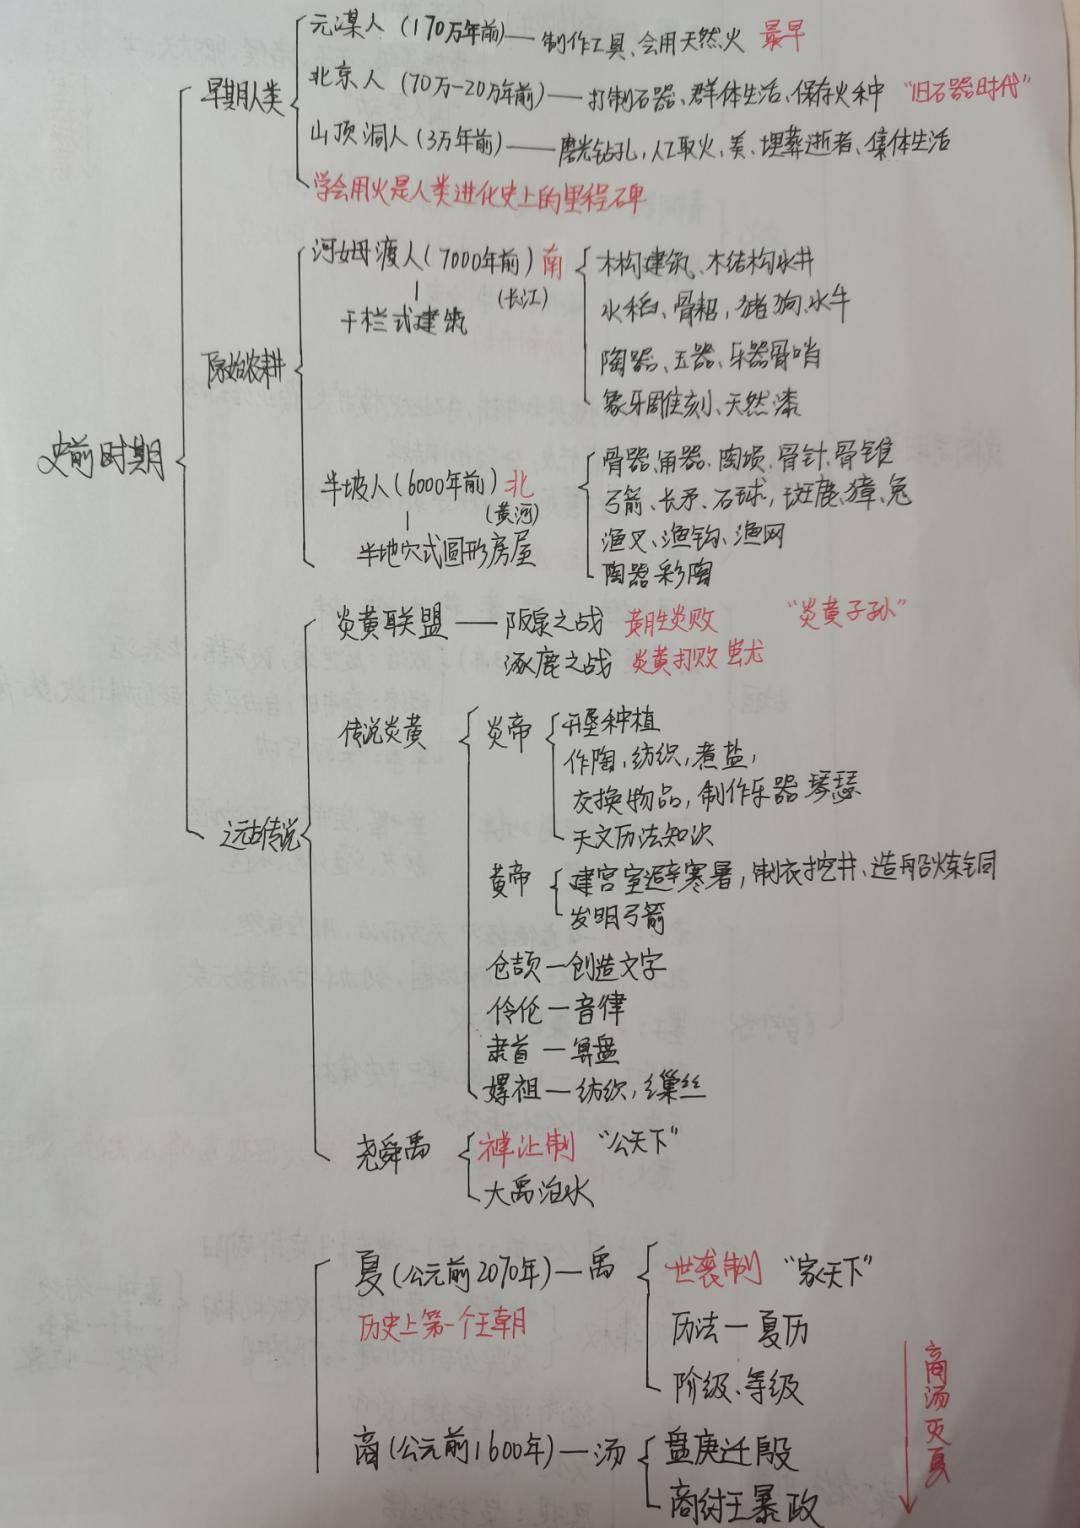 元谋人（170万年前）——制作工具、会用天然火 最早
早期人类
北京人（70万-20万年前）——打制石器、群体生活、保存火种 “旧石器时代”
山顶洞人（3万年前）——磨光钻孔，人工取火、美、埋葬逝者、集体生活
学会用火是人类进化史上的里程碑
河姆渡人（7000年前）南
（长江）
干栏式建筑
木构建筑、木结构水井
水稻、骨耜，猪狗、水牛
陶器、玉器、乐器骨哨
象牙雕刻、天然漆
原始农耕
史前时期
半坡人（6000年前）北
（黄河）
半地穴式圆形房屋
骨器、角器、陶埙、骨针、骨锥
弓箭、长矛、石球，斑鹿、獐、兔
渔叉、渔钩、渔网
陶器 彩陶
炎黄联盟——阪泉之战 黄胜炎败 “炎黄子孙”
涿鹿之战 炎黄打败蚩尤
传说炎黄
炎帝
开垦种植
作陶，纺织，煮盐，
交换物品，制作乐器 琴瑟
天文历法知识
远古传说
黄帝
建宫室避寒暑，制衣挖井、造船炼铜
发明弓箭
仓颉—创造文字
伶伦—音律
隶首—算盘
嫘祖—纺织，缫丝
尧舜禹
禅让制 “公天下”
大禹治水
夏（公元前2070年）—禹
历史上第一个王朝
世袭制 “家天下”
历法—夏历
阶级、等级
商汤灭夏
商（公元前1600年）—汤
盘庚迁殷
商纣王暴政